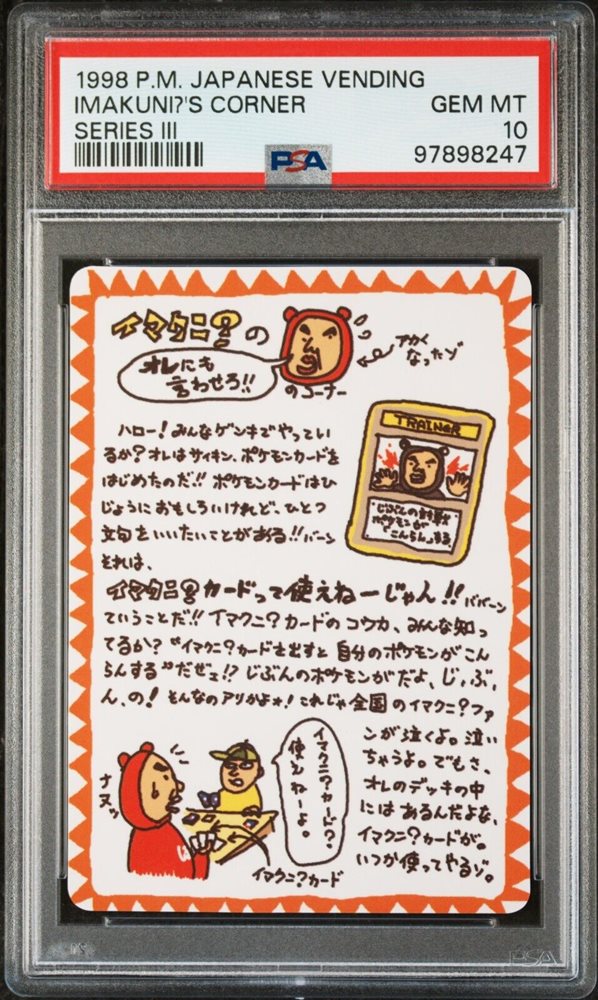 1998 P.M. JAPANESE VENDING
IMAKUNI?'S CORNER GEM MT
SERIES III 10
PSA 97898247
イマクニ?の
オレにも
言わせろ!!
のコーナー
アカく
なったゾ
ハロー!みんなゲンキでやってい
るか?オレはサイキン、ポケモンカードを
はじめたのだ!!ポケモンカードはひ
じょうにおもしろいけれど、ひとつ
文句をいいたいことがある!!バーン
それは、
TRAINER
じぶんの対戦
ポケモンが
「こんらん」する
イマクニ?カードって使えねーじゃん!!ババーン
ていうことだ!!イマクニ?カードのコウカ、みんな知っ
てるか?"イマクニ?カードを出すと自分のポケモンがこん
らんする"だぜェ!?じぶんのポケモンがだよ、じ、ぶ、
ん、の!そんなのアリかよォ!これじゃ全国のイマクニ?ファ
ンが泣くよ。泣い
ちゃうよ。でもさ、
オレのデッキの中
にはあるんだよな、
イマクニ?カードが。
いつか使ってやるゾ。
イマクニ?カード?
使えねーよ。
ナヌッ
イマクニ?カード
PSA